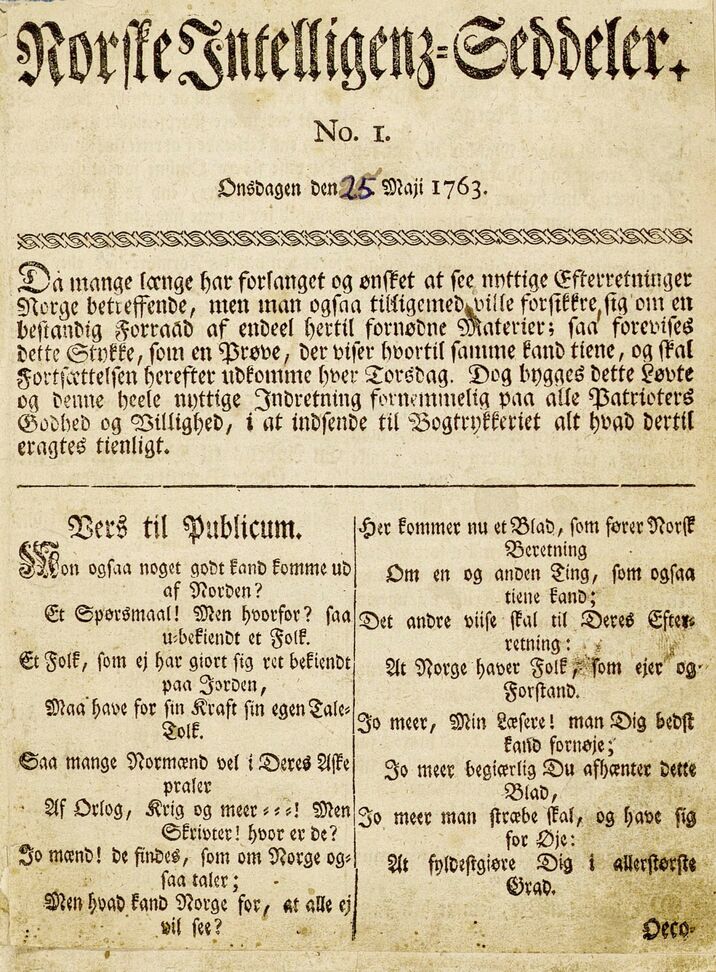 Norske Intelligenz-Seddeler.
No. 1.
Onsdagen den 25 Maji 1763.
Da mange længe har forlanget og ønsket at see nyttige Efterretninger
Norge betreffende, men man ogsaa tilligemed ville forsikkre sig om en
bestandig Forraad af endeel hertil fornødne Materier; saa forevises
dette Stykke, som en Prøve, der viser hvortil samme kand tiene, og skal
Fortsættelsen herefter udkomme hver Torsdag. Dog bygges dette Løvte
og denne heele nyttige Indretning fornemmelig paa alle Patrioters
Godhed og Villighed, i at indsende til Bogtrykkeriet alt hvad dertil
eragtes tienligt.
Vers til Publicum.
Mon ogsaa noget godt kand komme ud
af Norden?
Et Spørsmaal! Men hvorfor? saa
u-bekiendt et Folk.
Et Folk, som ej har giort sig ret bekiendt
paa Jorden,
Maa have for sin Kraft sin egen Tale-
Tolk.
Saa mange Normænd vel i Deres Aske
praler
Af Orlog, Krig og meer ---! Men
Skrivter! hvor er de?
Jo mænd! de findes, som om Norge og-
saa taler;
Men hvad kand Norge for, at alle ej
vil see?
Her kommer nu et Blad, som fører Norsk
Beretning
Om en og anden Ting, som ogsaa
tiene kand;
Det andre viise skal til Deres Efter-
retning:
At Norge haver Folk, som ejer og
Forstand.
Jo meer, Min Læsere! man Dig bedst
kand fornøje;
Jo meer begiærlig Du afhænter dette
Blad,
Jo meer man stræbe skal, og have sig
for Øje:
At fyldestgiøre Dig i allerstørste
Grad.
Oeco-